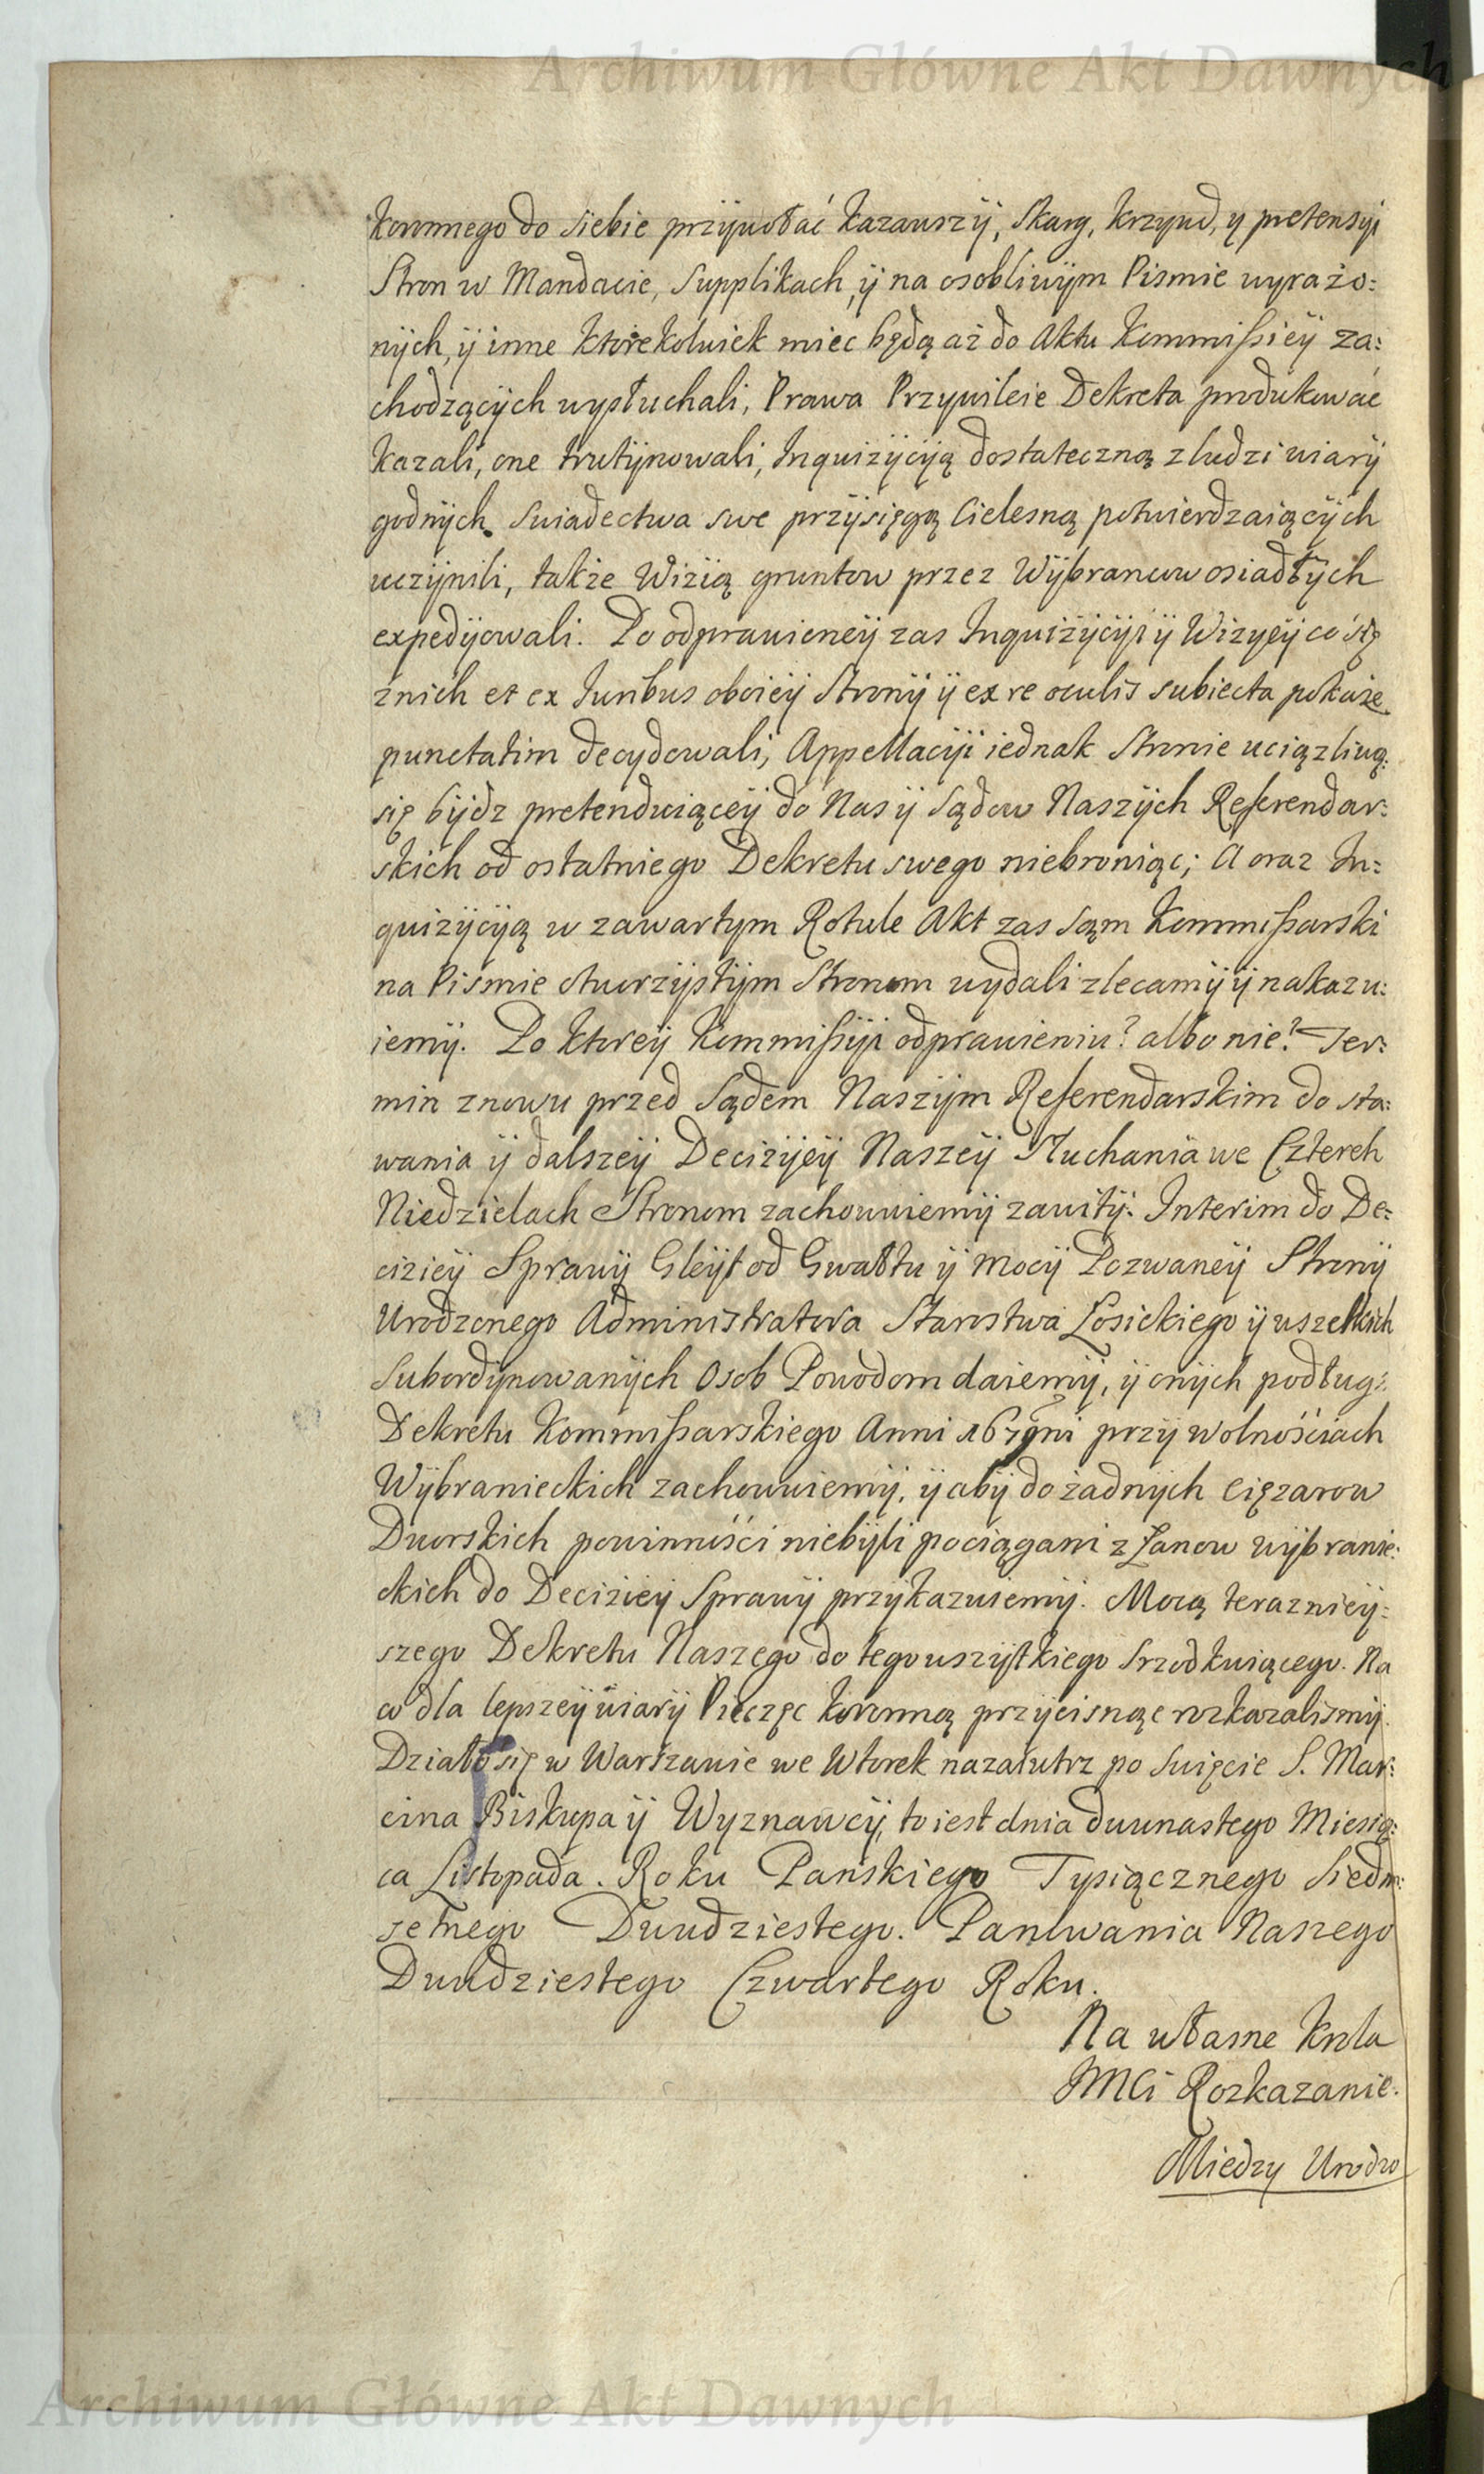 Archiwum Główne Akt Dawnych
koronnego do siebie przijwołać kazawszÿ, skarg, krzywd, y pretensyi
Stron w Mandacie, Supplikach, ÿ na osobliwÿm Pismie wyrażo:
nÿch, ÿ inne ktorekolwiek miec będą aż do Aktu Kommißieÿ za:
chodzącÿch wysłuchali, Prawa Przywileie Dekreta produkować
kazali, one trutÿnowali, Inquizÿcÿą dostateczną z ludzi wiarÿ
godnÿch swiadectwa swe przÿsięgą Cielesną potwierdzaiącÿch
uczÿnili, także Wizią gruntow przez Wÿbrancow osiadłÿch
expedÿowali. Po odprawioneÿ zas Inquizÿcÿi ÿ Wizyeÿ co się
z nich et ex Iuribus oboieÿ Stronÿ ÿ ex re oculis subiecta pokaże
punctatim decydowali, Appellacÿi iednak Stronie uciązliwą
się bÿdz pretenduiąceÿ do Nas ÿ Sądow Naszÿch Referendar:
skich od ostatniego Dekretu swego niebroniąc; A oraz In:
quizÿcÿą w zawartym Rotule Akt zas sąm Kommißarski
na Pismie otworzÿstÿm Stronom wydali zlecamÿ ÿ nakazu:
iemÿ. Po ktoreÿ Kommißÿi odprawieniu? albo nie? Ter:
min znowu przed Sądem Naszÿm Referendarskim do sta:
wania ÿ dalszeÿ Decizÿeÿ Naszeÿ słuchania we Czterech
Niedzielach Stronom zachowuiemÿ zawitÿ. Interim do De:
cizieÿ Sprawÿ Gleÿt od Gwałtu ÿ mocÿ Pozwaneÿ Stronÿ
Urodzonego Administratora Starostwa Łosickiego ÿ wszelkich
Subordÿnowanÿch Osob Powodom daiemÿ, ÿ onÿch podług
Dekretu Kommißarskiego Anni 1679ni przÿ wolnościach
Wÿbranieckich zachowuiemÿ, ÿ abÿ do żadnÿch ciężarow
Dworskich powinności niebÿli pociągani z Łanow wÿbranie:
ckich do Decizieÿ Sprawÿ przÿkazuiemÿ. Mocą teraznieÿ:
szego Dekretu Naszego do tego wszÿstkiego srzodkuiącego. Na
co dla lepszeÿ wiarÿ Pieczęc koronną przÿcisnąc rozkazalismÿ.
Działo się w Warszawie we Wtorek nazaiutrz po Swięcie S. Mar:
cina Biskupa ÿ Wyznawcÿ, to iest dnia dwunastego Miesią:
ca Listopada. Roku Pańskiego Tysiącznego Siedm:
setnego Dwudziestego. Panowania Naszego
Dwudziestego Czwartego Roku.
Na własne Krola
JMCi Rozkazanie.
Miedzy Urodzo
Archiwum Główne Akt Dawnych